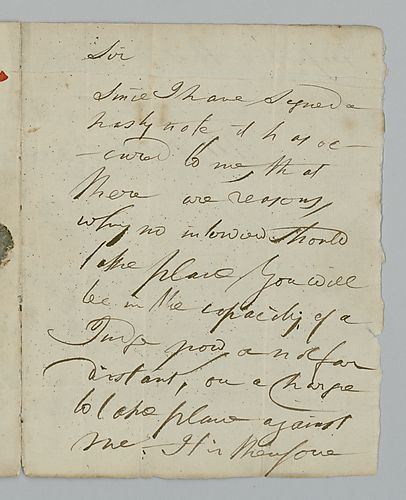 Sir
Since I have signed a
hasty note it has oc-
-cured to me, that
there are reasons,
why no interview should
take place. You will
be in the capacity of a
Judge a not far
distant, on a charge
to take place against
me. It is therefore